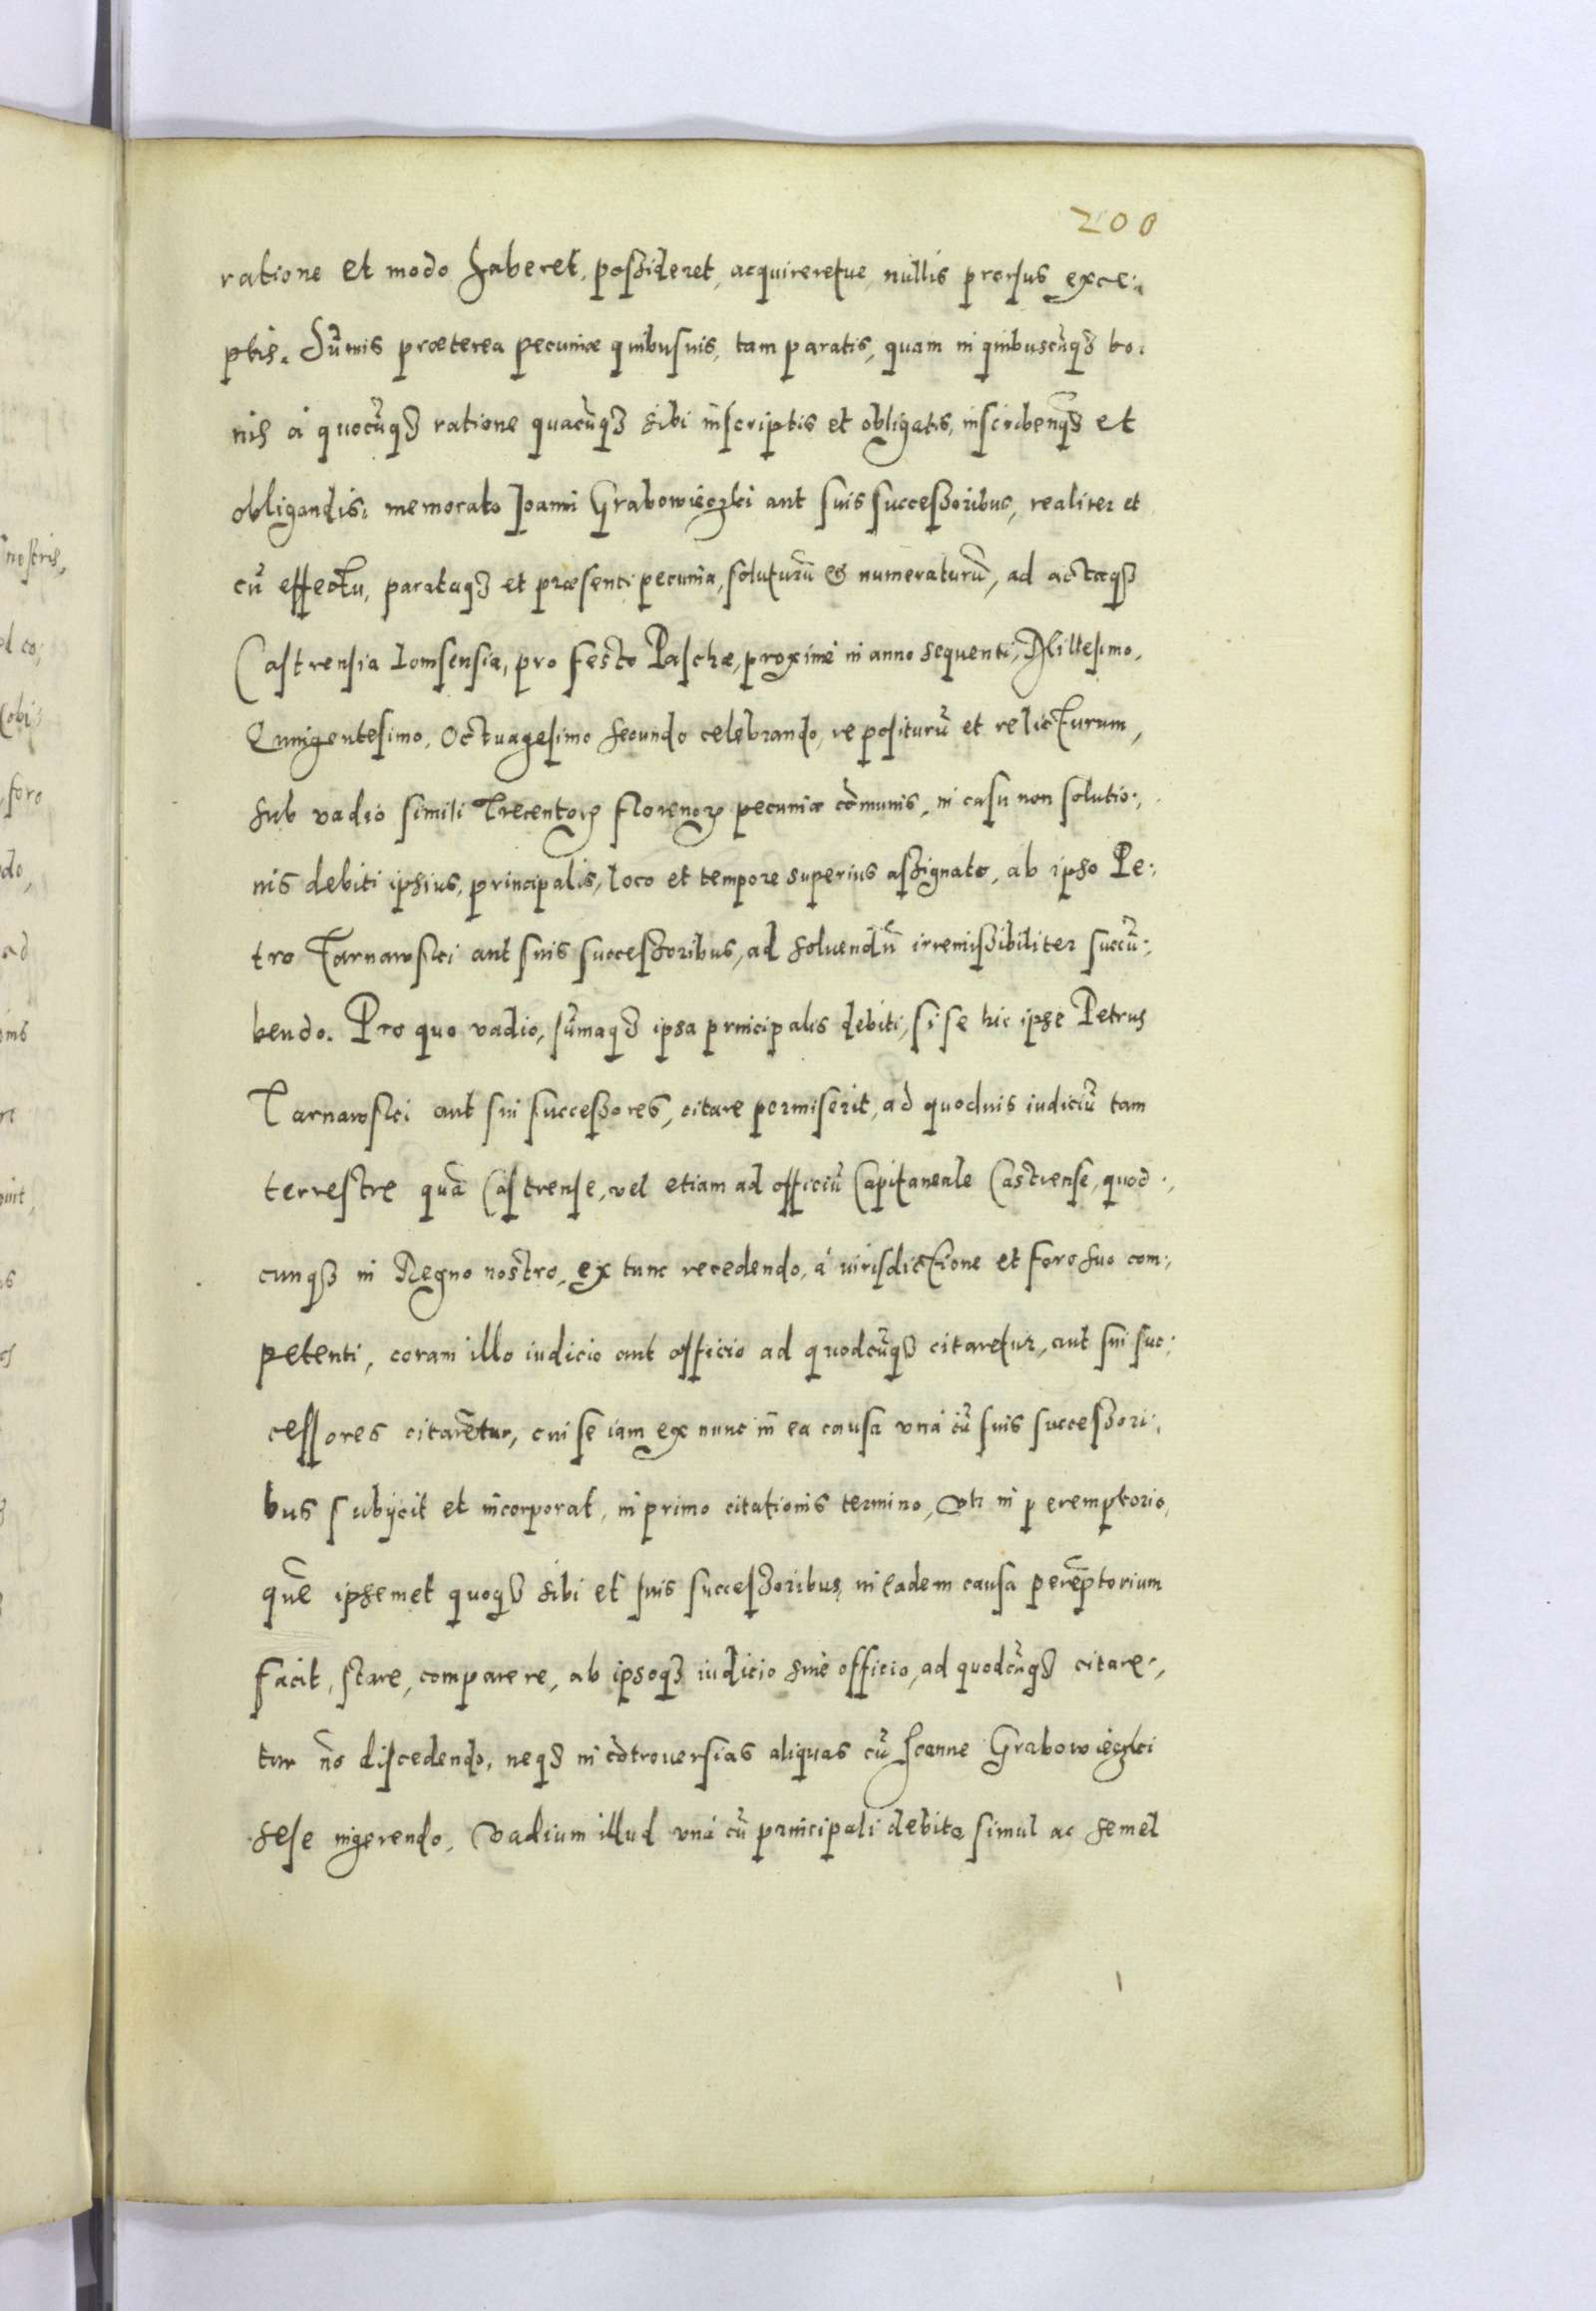 200
ratione et modo haberet, possideret, acquireretue, nullis prorsus exce:
ptis. Sũmis præterea pecuniæ quibusuis, tam paratis, quam in quibuscũqȝ bo:
nis à quocũqȝ ratione quacũqȝ sibi inscriptis et obligatis, inscribenqȝ et
obligandis, memorato Joanni Grabowieczki aut suis successoribus, realiter et
cũ effectu, parataqȝ et præsenti pecunia, soluturũ & numeraturũ, ad actaqȝ
Castrensia Lomsensia, pro festo Paschæ, proximè in anno sequenti, Millesimo,
Quingentesimo, Octuagesimo secundo celebrando, repositurũ et relicturum,
sub vadio simili Trecentorꝝ florenorꝝ pecuniæ cõmunis, in casu non solutio:
nis debiti ipsius, principalis, loco et tempore superius assignato, ab ipso Pe:
tro Tarnawski aut suis successoribus, ad soluendũ irremissibiliter succũ:
bendo. Pro quo vadio, sũmaqȝ ipsa principalis debiti, si se hic ipse Petrus
Tarnawski aut sui successores, citare permiserit, ad quoduis iudiciũ tam
terrestre quã Castrense, vel etiam ad officiũ Capitaneale Castrense, quod:
cunqȝ in Regno nostro, ex tunc recedendo, à iurisdictione et foro suo com:
petenti, coram illo iudicio aut officio ad quodcũqȝ citaretur, aut sui suc:
cessores citarẽtur, cui se iam ex nunc in ea causa vnà cũ suis successori:
bus subÿcit et incorporat, in primo citationis termino, vti in peremptorio,
quẽ ipsemet quoqȝ sibi et suis successoribus, in eadem causa perẽptorium
facit, stare, comparere, ab ipsoqȝ iudicio siue officio, ad quodcũqȝ citare:
tur nõ discedendo, neqȝ in cõtrouersias aliquas cũ Joanne Grabowieczki
sese ingerendo, Vadium illud vnà cũ principali debito simul ac semel